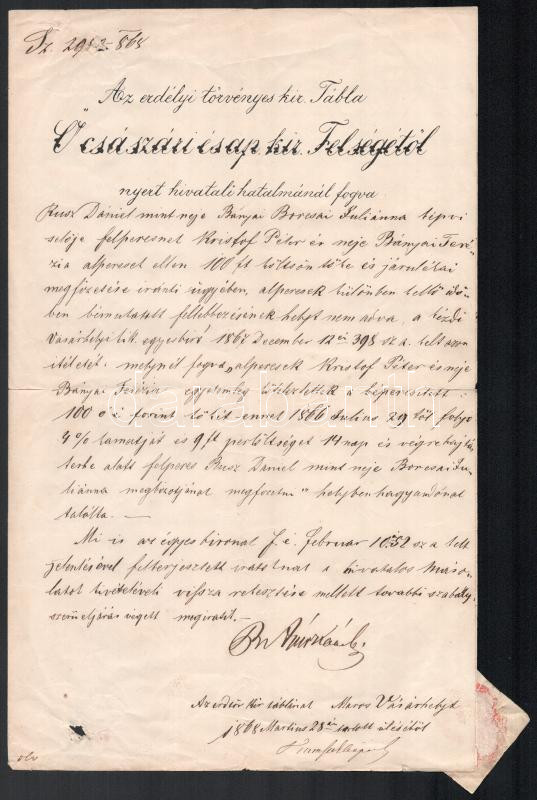 Sz. 1868
„Az erdélyi törvényes kir. Tábla
Ő császári és ap. kir. Felségétől
nyert hivatali hatalmánál fogva
Rusz Dániel mint neje Bányai Borcsai Juliánna képvi
selője felperesnek Kristof Péter és neje Bányai Teré
zia alperesek ellen 100 ft kölcsön tőke és járulékai
megfizetése iránti ügyében, alperesek különben kellő idő
ben bemutatott fellebbezésének helyt nem adva, a kézdi
vásárhelyi t.k. egyes biró 1867 December 12én 398 sz a. kelt azon
itéletét: melynél fogva „alperesek Kristof Péter és neje
Bányai Terézia egyetemleg köteleztettek a béperesitett
100 o é forint tőkét ennek 1866 Julius 29től folyó
4% kamatját és 9 ft perköltséget 14 nap és végrehajtás
terhe alatt felperes Rusz Daniel mint neje Borcsai Ju
liánna megbizottjának megfizetni" helyben hagyandónak
találta. —
Mi is az egyes birónak f. é. február 10én 52 sz a kelt
jelentésével felterjesztett iratoknak a hivatalos máso
latok kivételével vissza rekesztése mellett további szabály
szerü eljárás végett megiratik. —
Az erdélyi kir táblának Maros Vásárhelyt
1868 Martius 28án tartott üléséből